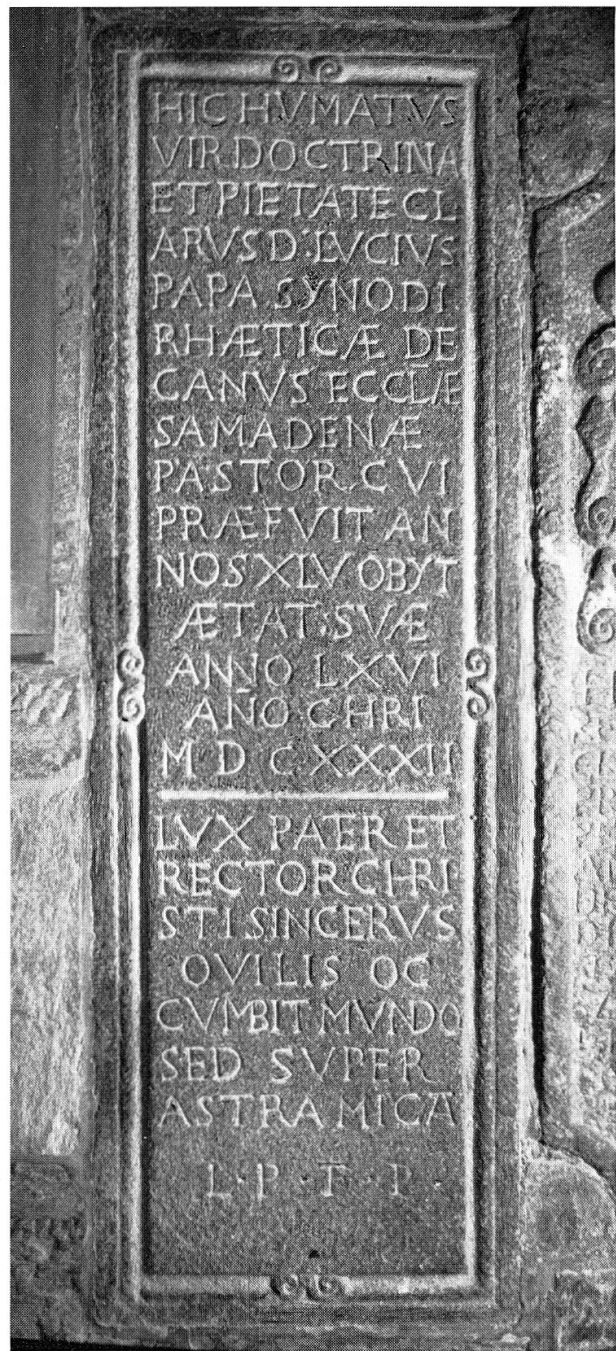 HIC HVMATVS
VIR DOCTRINA
ET PIETATE CL
ARVS D: LVCIVS
PAPA SYNODI
RHÆTICÆ DE
CANVS ECCLÆ
SAMADENÆ
PASTOR CVI
PRÆFVIT AN
NOS XLV OBYT
ÆTAT: SVÆ
ANNO LXVI
AÑO CHRI
M D CXXXII
LVX PATER ET
RECTOR CHRI
STI SINCERVS
OVILIS OC
CVMBIT MVNDO
SED SVPER
ASTRA MICAT
L · P · F · P ·